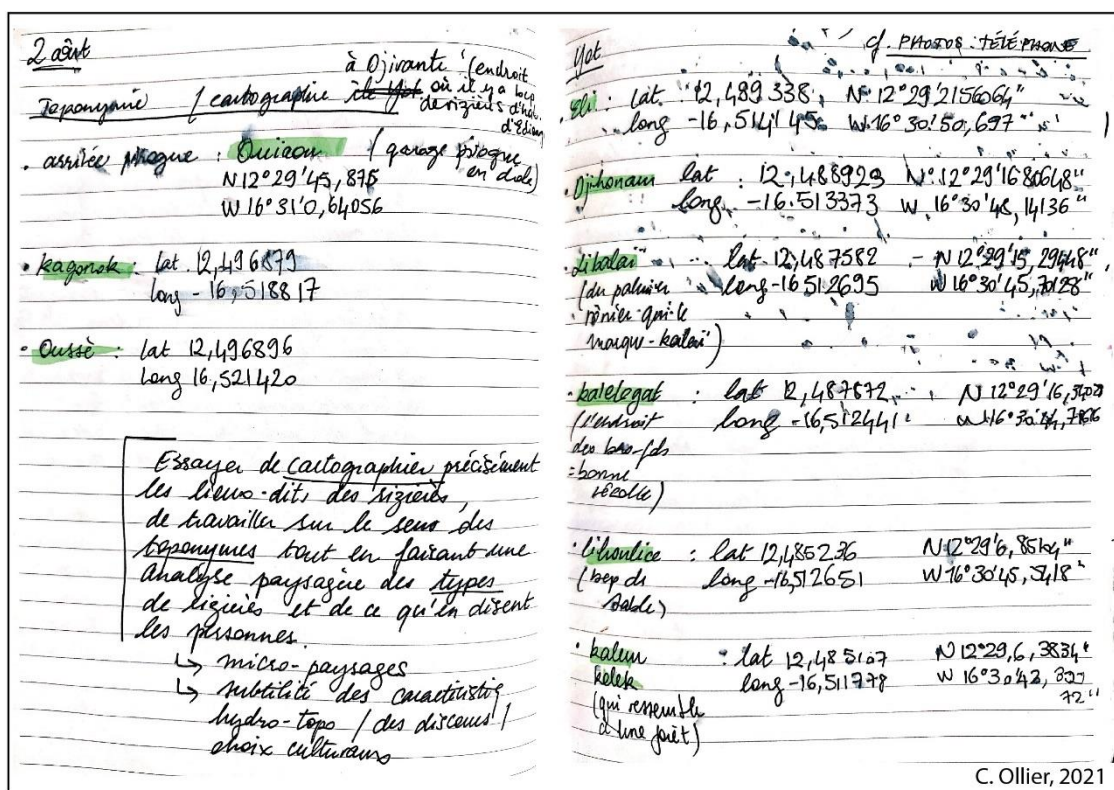 2 août
à Djivante (endroit
où il y a bcp
de rizières d'hab.
d'Edioung
Toponymie / cartographie
. arrivée pirogue : Ouicou (garage pirogue
en diola)
N 12°29'45,875
W 16°31'0,64056
. kagonok : lat. 12,496879
long - 16,518817
. Oussè : lat 12,496896
long 16,521420
Essayer de cartographier précisément
les lieux-dits des rizières,
de travailler sur le sens des
toponymes tout en faisant une
analyse paysagère des types
de rizières et de ce qu'en disent
les personnes.
↳ micro-paysages
↳ subtilité des caractéristiq
hydro-topo / des discours /
choix culturaux
Yot
cf. PHOTOS TÉLÉPHONE
. Eli : lat. 12,489338, N 12°29'21,56064"
long -16,514145 W 16°30'50,697"
. Djihonam lat : 12,488923 N 12°29'16 80648"
long -16.513373 W 16°30'48,14136"
. Libalaï lat 12,487582 - N 12°29'15,29448"
(du palmier long -16 512695 W 16°30'45,70128"
rônier qui le
marque - kalaï)
. balelegat : lat 12,487872 N 12°29'16,34028
(l'endroit long -16,512441 W 16°30'44,7876
des bas-fds
= bonne
récolte)
. Lihoulice : lat 12,485236 N 12°29'6,85164"
(bcp de long -16,512651 W 16°30'45,5418"
sable)
. kaleun : lat 12,485107 N 12°29,6,3834"
kolek long -16,511778 W 16°30'42,399
72"
(qui ressemble
à une forêt)
C. Ollier, 2021